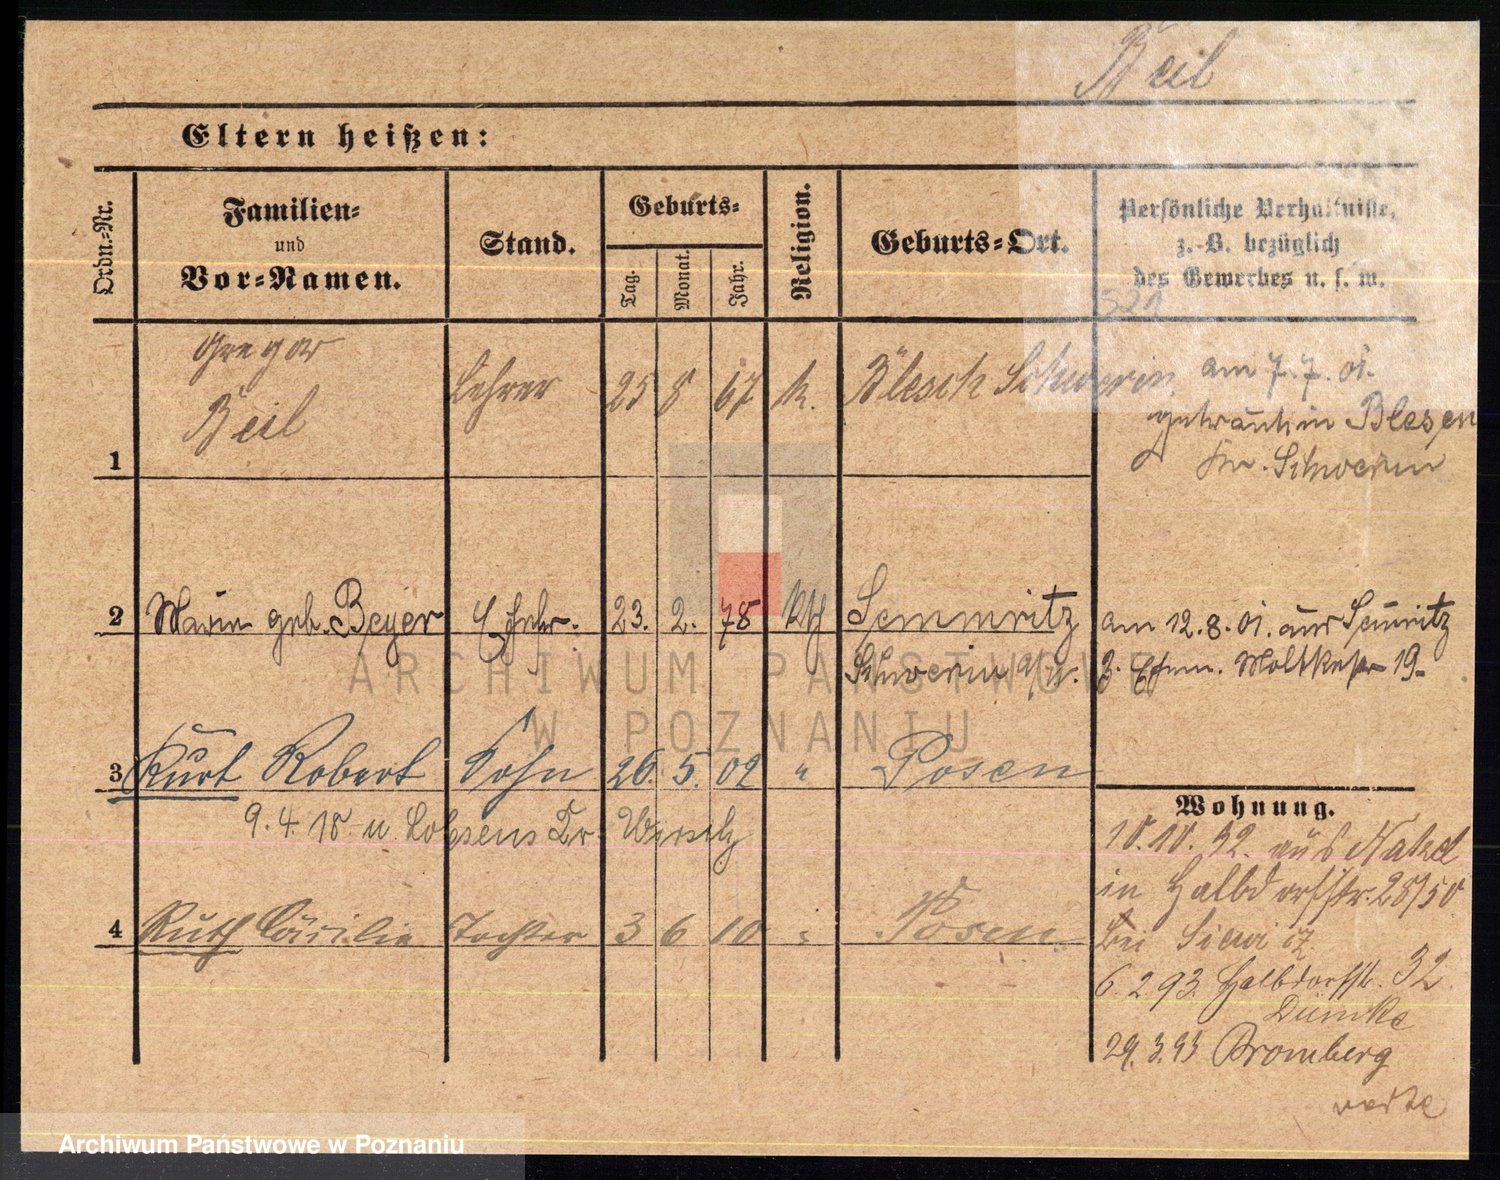 Beil
Eltern heißen:
Ordn.-Nr.
Familien-
und
Vor-Namen.
Stand.
Geburts-
Tag.
Monat.
Jahr.
Religion.
Geburts-Ort.
Persönliche Verhältnisse,
z.-B. bezüglich
des Gewerbes u. s. w.
1
Gregor
Beil
Lehrer
25 8 67 k.
Blesch Schwerin
am 7.7.01.
getraut in Blesen
Kr. Schwerin
2 Marie geb. Beyer Ehefr. 23. 2. 78 kth Semmritz
Schwerin a/W.
am 12.8.01. aus Semritz
z. Ehem. Moltkestr 19-
3 Kurt Robert Sohn 26. 5. 02 " Posen
9.4.18 n. Lobsens Kr. Wirsitz
4 Ruth Cäcilie Tochter 3 6 10 " Posen
Wohnung.
10.10.92. aus Nakel
in Halbdorfstr. 28/50
bei
6.2.93. Halbdorfstr. 32
Dümke
29.3.93 Bromberg